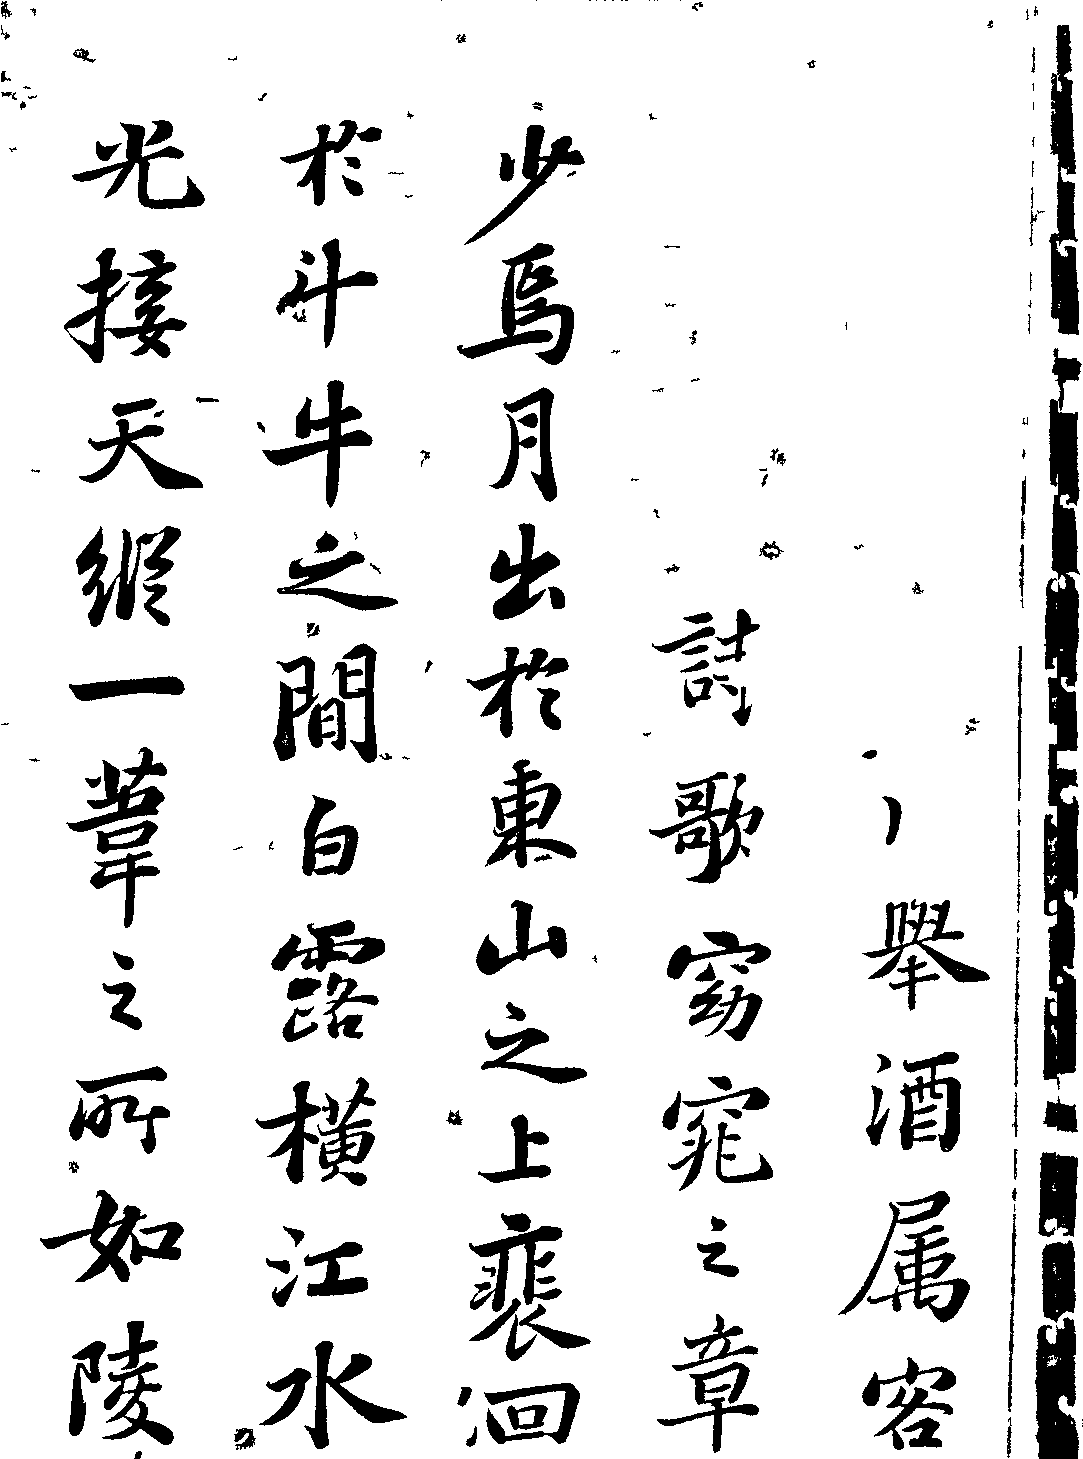 舉酒属客
詩歌窈窕之章
少焉月出於東山之上裵徊
於斗牛之間白露横江水
光接天縱一葦之所如陵